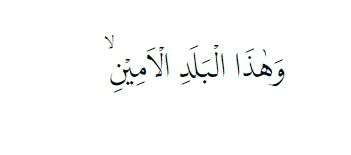 وَهٰذَا الْبَلَدِ الْاَمِيْنِۙ